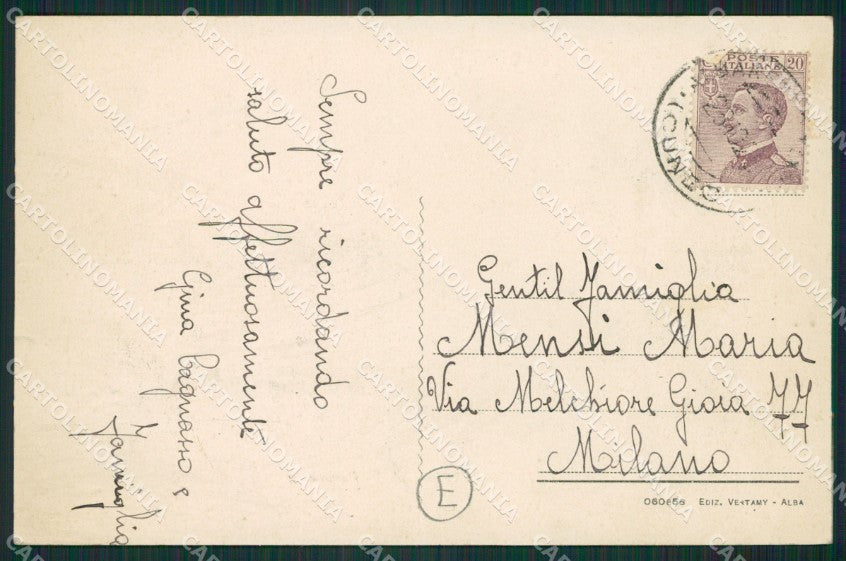 Sempre ricordando
saluto affettuosamente
Gina Cagnasso e
Famiglia
POSTE
ITALIANE 20
(CUNEO)
Gentil Famiglia
Mensi Maria
Via Melchiore Gioia 77
Milano
E
EDIZ. VENTAMY - ALBA
CARTOLINOMANIA